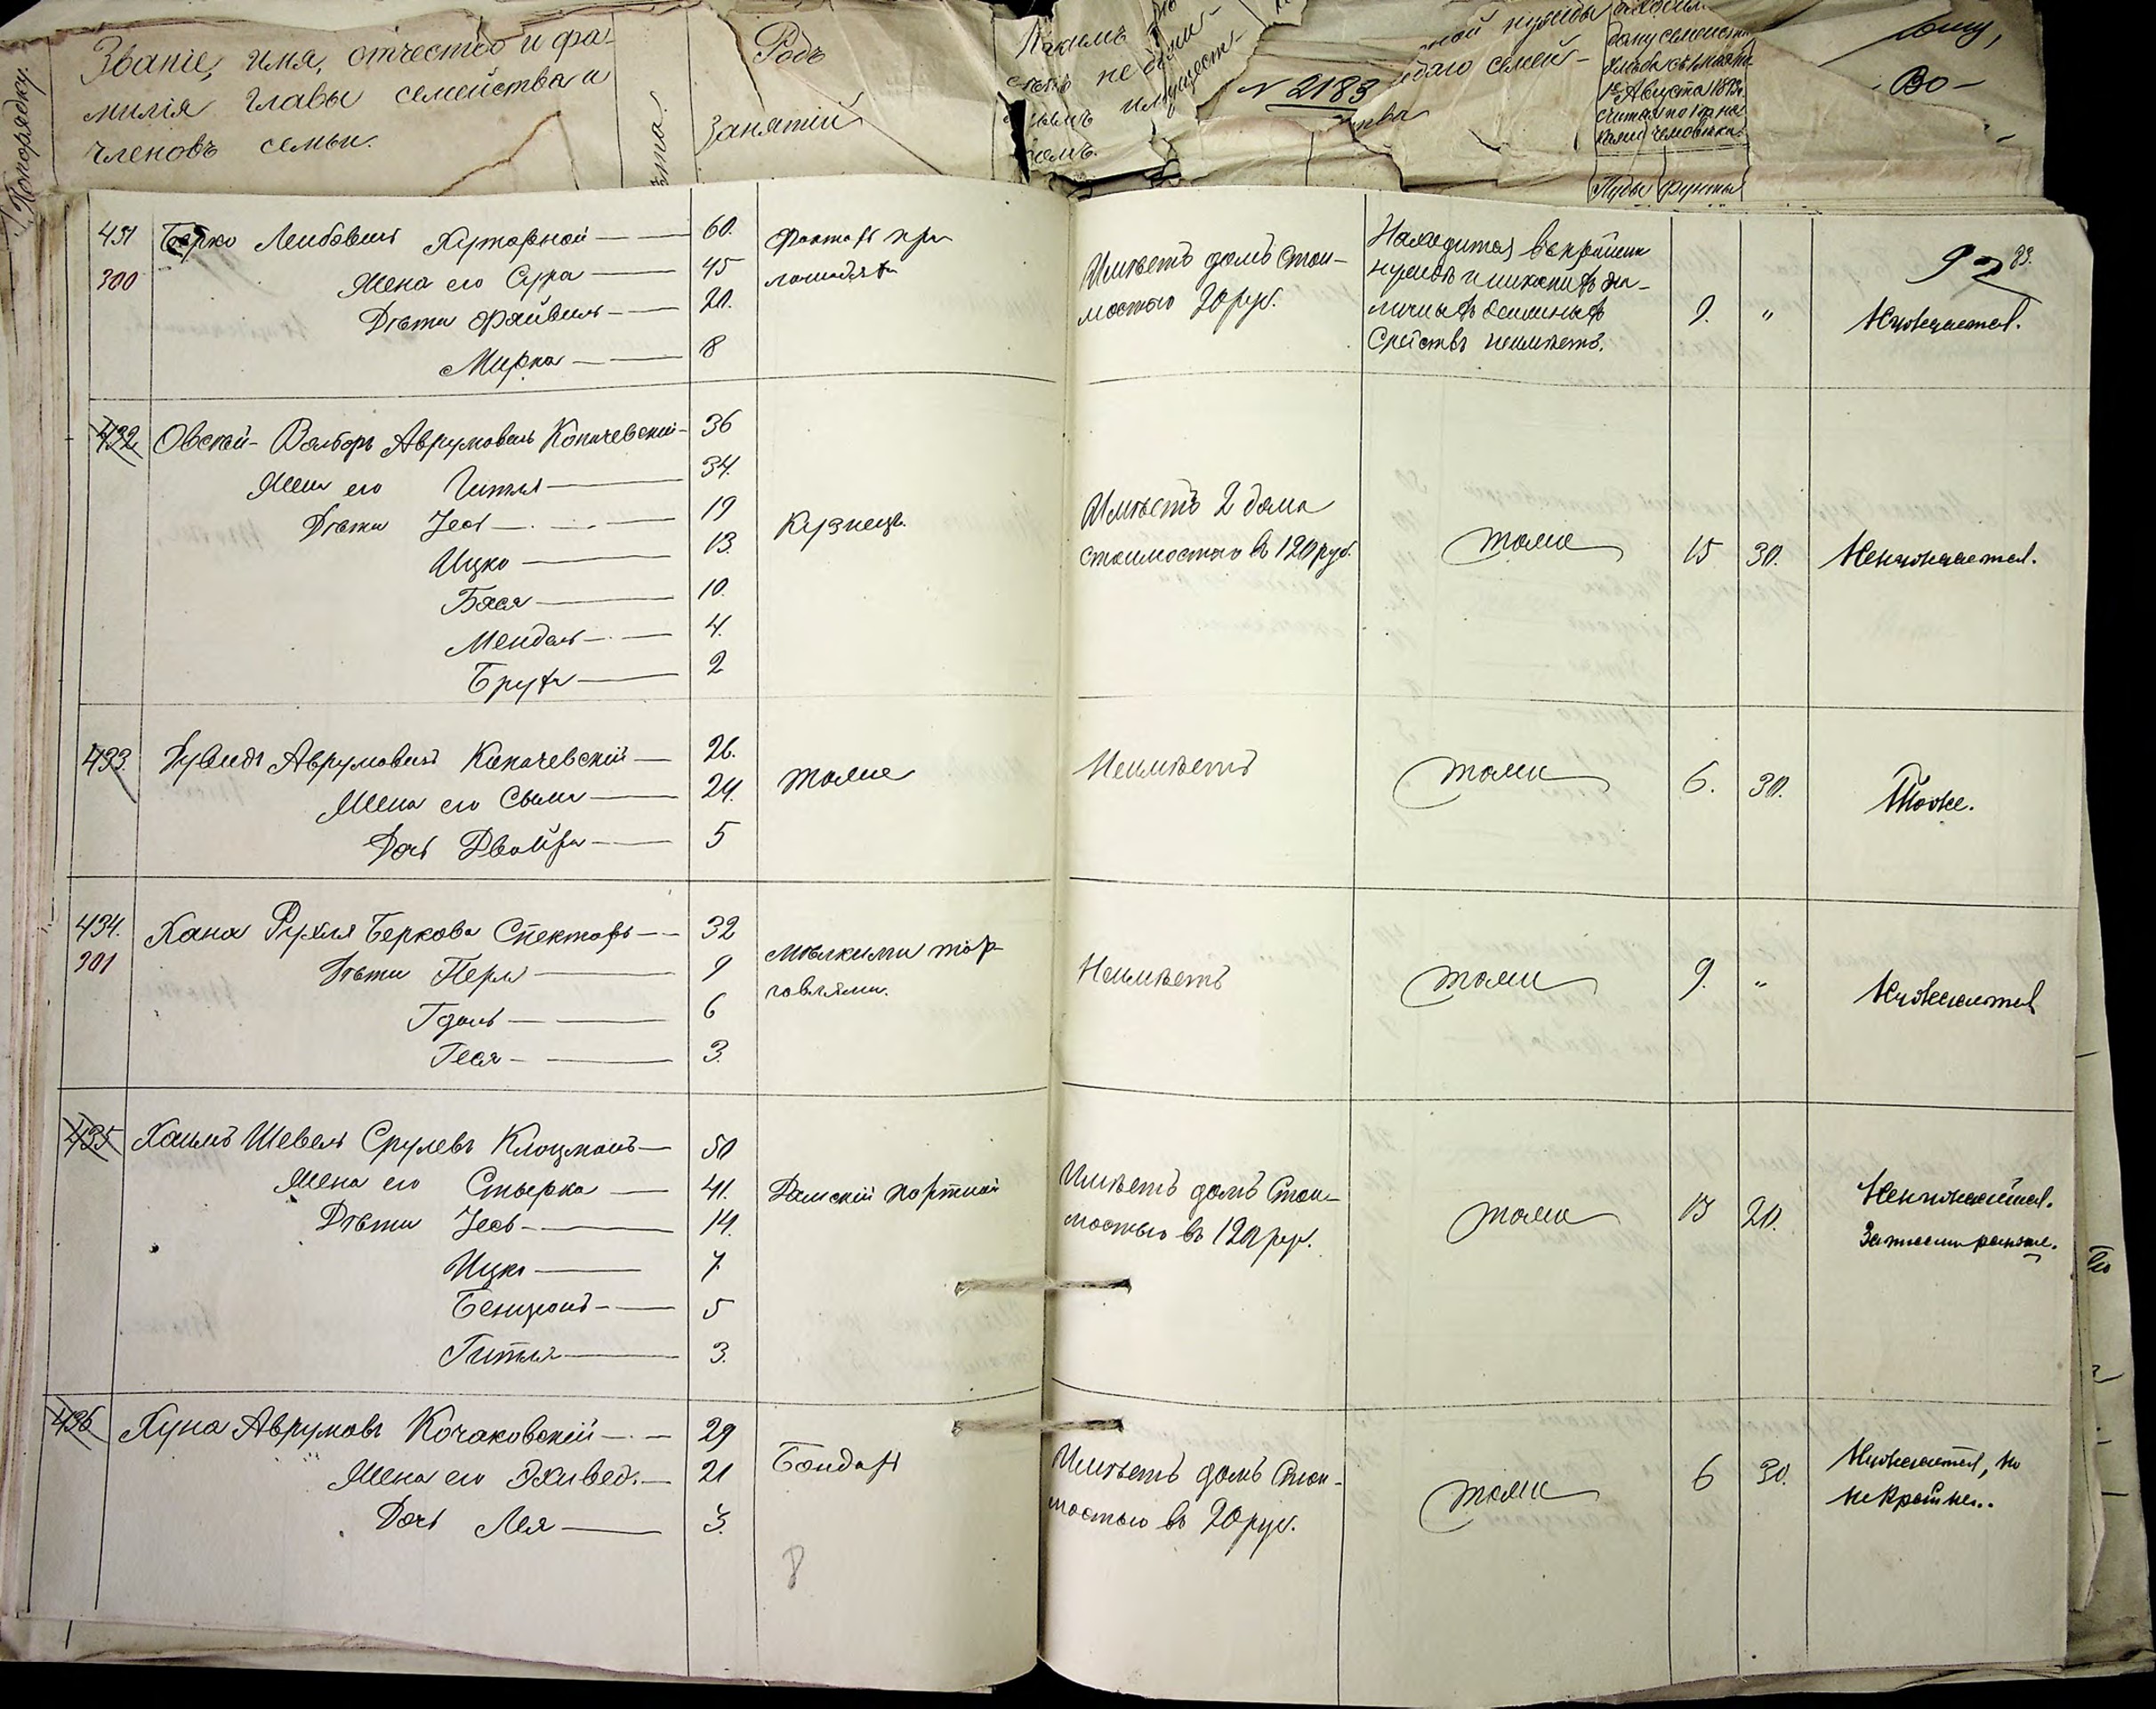 По порядку.
Званіе, имя, отчество и фа-
милія главы семейства и
членовъ семьи.
Родъ
занятій
N 2183
1е Августа
Пуды Фунты
Во-
92
431 Берко Лейбовичъ Хуторной 60.
300 Жена его Сура 45
Дѣти Файвель 20.
Мирка 8
Факторъ при
лошадяхъ
Имѣетъ домъ стои-
мостью 20 руб.
Находится въ крайней
нуждѣ и никакихъ на-
личныхъ денежныхъ
Средствъ неимѣетъ.
9. "
Нуждается.
432 Овсей-Вольфъ Аврумовичъ Копачевскій 36
Жена его Гитля 34.
Дѣти Іось 19
Ицко 13.
Бася 10.
Мендель 4.
Бруха 2
Кузнецъ.
Имѣетъ 2 дома
стоимостью въ 120 руб.
тоже
15 30.
Ненуждается.
433. Дувидъ Аврумовичъ Копачевскій 26.
Жена его Сыма 24.
Дочь Двойра 5
тоже
Неимѣетъ
тоже
6. 30.
Тоже.
434. Хана Рухля Беркова Спекторъ 32
301 Дѣти Перля 9
Гдаль 6
Геся 3.
Мѣлкими тор-
говлями.
Неимѣетъ
тоже
9. "
Нуждается
435 Хаимъ Шевель Срулевъ Клоцманъ 50
Жена его Стырка 41.
Дѣти Іось 14.
Ицко 7.
Бенціонъ 5
Гитля 3.
Дамскій портной
Имѣетъ домъ стои-
мостью въ 120 руб.
тоже
13 20.
Ненуждается.
436 Хуна Аврумовъ Кочаковскій 29
Жена его 21
Дочь Лея 3.
Бондарь
Имѣетъ домъ стои-
мостью въ 20 руб.
тоже
6 30.
Нуждается, но
не крайне.